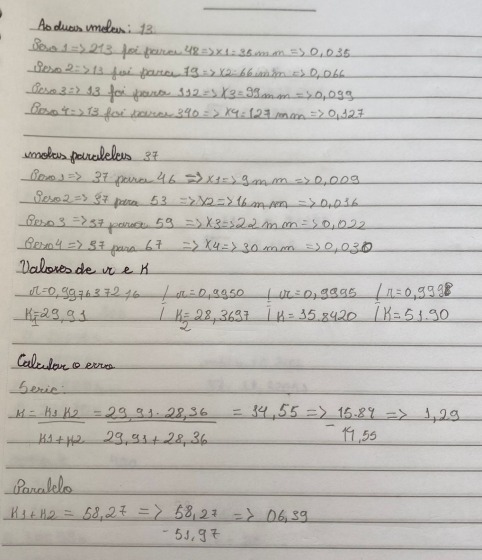 As duas molas: 13
Peso 1 => 213 foi para 48 => x1 = 35 mm => 0,035
Peso 2 => 13 foi para 79 => x2 = 66 mm => 0,066
Peso 3 => 13 foi para 112 => x3 = 99 mm => 0,099
Peso 4 => 13 foi para 390 => x4 = 127 mm => 0,127
molas paralelas 37
Peso 1 => 37 para 46 => x1 => 9 mm => 0,009
Peso 2 => 37 para 53 => x2 => 16 mm => 0,016
Peso 3 => 37 para 59 => x3 => 22 mm => 0,022
Peso 4 => 37 para 67 => x4 => 30 mm => 0,030
Valores de r e K
r=0,997637216 / r=0,9950 / r=0,9995 / r=0,9998
K1=29,91 / K2=28,3697 / K=15.8420 / K=51.90
Calcular o erro
Serie:
K = K1.K2 = 29,91.28,36 = 14,55 => 15.84 => 1,29
K1+K2 29,91+28,36 - 14,55
Paralelo
K1+K2 = 58,27 => 58,27 => 06,39
- 51,97